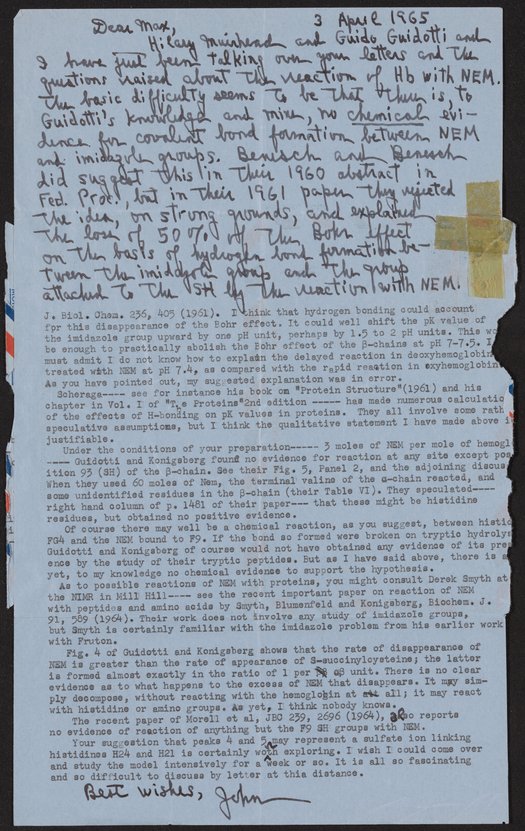 3 April 1965
Dear Max,
Hilary Muirhead and Guido Guidotti and
I have just been talking over your letters and the
questions raised about the reaction of Hb with NEM.
The basic difficulty seems to be that there is, to
Guidotti's knowledge and mine, no chemical evi-
dence for covalent bond formation between NEM
and imidazole groups. Benesch and Benesch
did suggest this in their 1960 abstract in
Fed. Proc., but in their 1961 paper they rejected
the idea, on strong grounds, and explained
the loss of 50% of the Bohr effect
on the basis of hydrogen bond formation be-
tween the imidazole group and the group
attached to the SH by the reaction with NEM.
J. Biol. Chem. 236, 405 (1961). I think that hydrogen bonding could account
for this disappearance of the Bohr effect. It could well shift the pK value of
the imidazole group upward by one pH unit, perhaps by 1.5 to 2 pH units. This wo
be enough to practically abolish the Bohr effect of the β-chains at pH 7-7.5. I
must admit I do not know how to explain the delayed reaction in deoxyhemoglobin
treated with NEM at pH 7.4, as compared with the rapid reaction in oxyhemoglobin
As you have pointed out, my suggested explanation was in error.
Scheraga---- see for instance his book on "Protein Structure"(1961) and his
chapter in Vol. I of "The Proteins" 2nd edition ----- has made numerous calculatio
of the effects of H-bonding on pK values in proteins. They all involve some rath
speculative assumptions, but I think the qualitative statement I have made above i
justifiable.
Under the conditions of your preparation----- 3 moles of NEM per mole of hemogl
---- Guidotti and Konigsberg found no evidence for reaction at any site except pos
ition 93 (SH) of the β-chain. See their Fig. 5, Panel 2, and the adjoining discus
When they used 60 moles of Nem, the terminal valine of the α-chain reacted, and
some unidentified residues in the β-chain (their Table VI). They speculated----
right hand column of p. 1481 of their paper--- that these might be histidine
residues, but obtained no positive evidence.
Of course there may well be a chemical reaction, as you suggest, between histid
FG4 and the NEM bound to F9. If the bond so formed were broken on tryptic hydroly
Guidotti and Konigsberg of course would not have obtained any evidence of its pre
ence by the study of their tryptic peptides. But as I have said above, there is a
yet, to my knowledge no chemical evidence to support the hypothesis.
As to possible reactions of NEM with proteins, you might consult Derek Smyth at
the NIMR in Mill Hill---- see the recent important paper on reaction of NEM
with peptides and amino acids by Smyth, Blumenfeld and Konigsberg, Biochem. J.
91, 589 (1964). Their work does not involve any study of imidazole groups,
but Smyth is certainly familiar with the imidazole problem from his earlier work
with Fruton.
Fig. 4 of Guidotti and Konigsberg shows that the rate of disappearance of
NEM is greater than the rate of appearance of S-succinylcysteine; the latter
is formed almost exactly in the ratio of 1 per αβ unit. There is no clear
evidence as to what happens to the excess of NEM that disappears. It may sim-
ply decompose, without reacting with the hemoglobin at all; it may react
with histidine or amino groups. As yet, I think nobody knows.
The recent paper of Morell et al, JBC 239, 2696 (1964), also reports
no evidence of reaction of anything but the F9 SH groups with NEM.
Your suggestion that peaks 4 and 5 may represent a sulfate ion linking
histidines H24 and H21 is certainly woth exploring. I wish I could come over
and study the model intensively for a week or so. It is all so fascinating
and so difficult to discuss by letter at this distance.
Best wishes, John